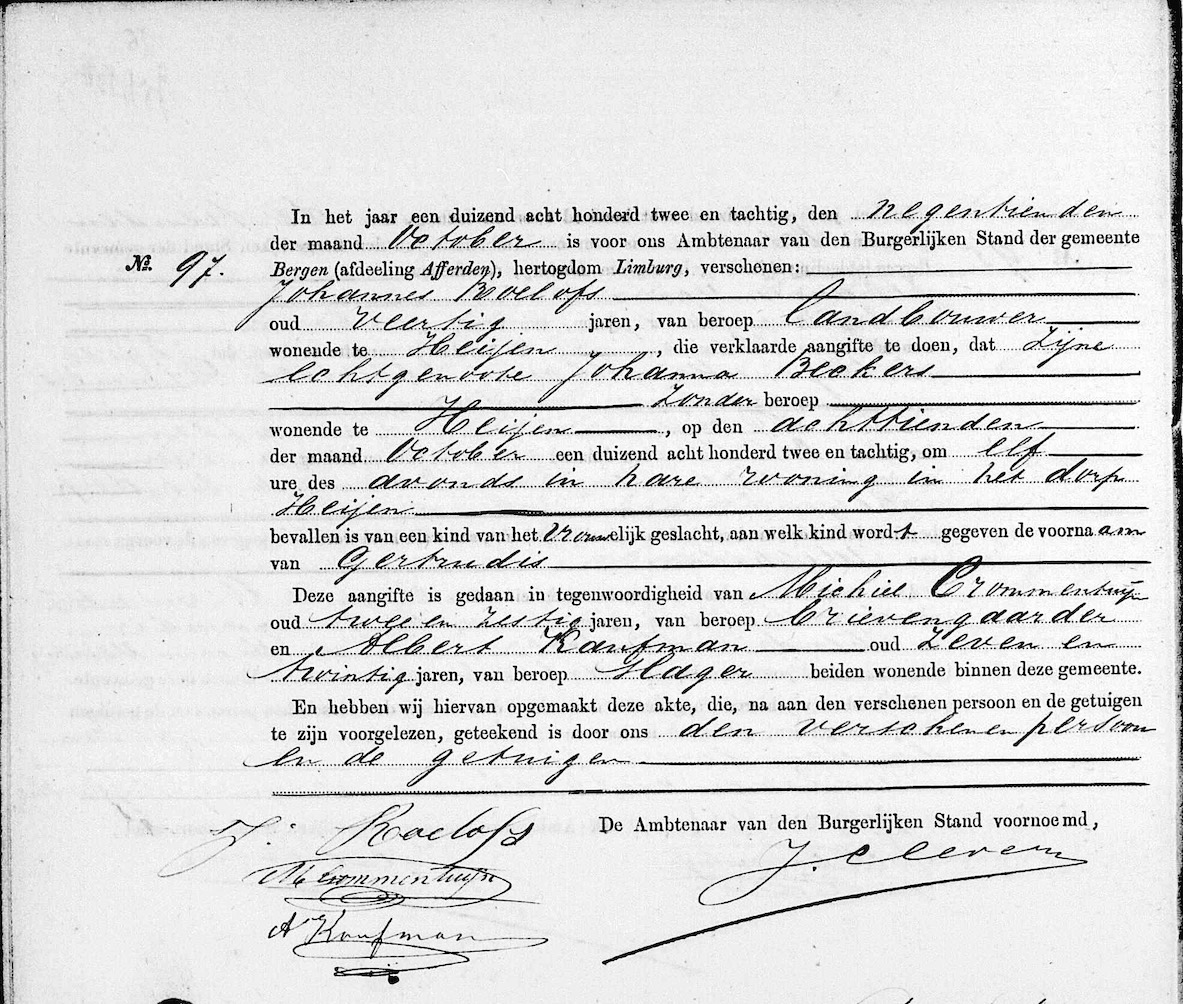 In het jaar een duizend acht honderd twee en tachtig, den negentienden
der maand October is voor ons Ambtenaar van den Burgerlijken Stand der gemeente
№. 97. Bergen (afdeeling Afferden), hertogdom Limburg, verschenen:
Johannes Roelofs
oud Veertig jaren, van beroep Landbouwer
wonende te Heijen, die verklaarde aangifte te doen, dat Zijne
Echtgenoote Johanna Beckers
Zonder beroep
wonende te Heijen, op den achttienden
der maand October een duizend acht honderd twee en tachtig, om elf
ure des avonds in hare woning in het dorp
Heijen
bevallen is van een kind van het Vrouwelijk geslacht, aan welk kind wordt gegeven de voornaam
van Gertrudis
Deze aangifte is gedaan in tegenwoordigheid van Michiel Crommentuijn
oud twee en Zestig jaren, van beroep Brievengaarder
en Albert Kaufman oud Zeven en
twintig jaren, van beroep Slager beiden wonende binnen deze gemeente.
En hebben wij hiervan opgemaakt deze akte, die, na aan den verschenen persoon en de getuigen
te zijn voorgelezen, geteekend is door ons den verschenen persoon
en de getuigen
J. Roelofs
De Ambtenaar van den Burgerlijken Stand voornoemd,
M Crommentuijn
A Kaufman